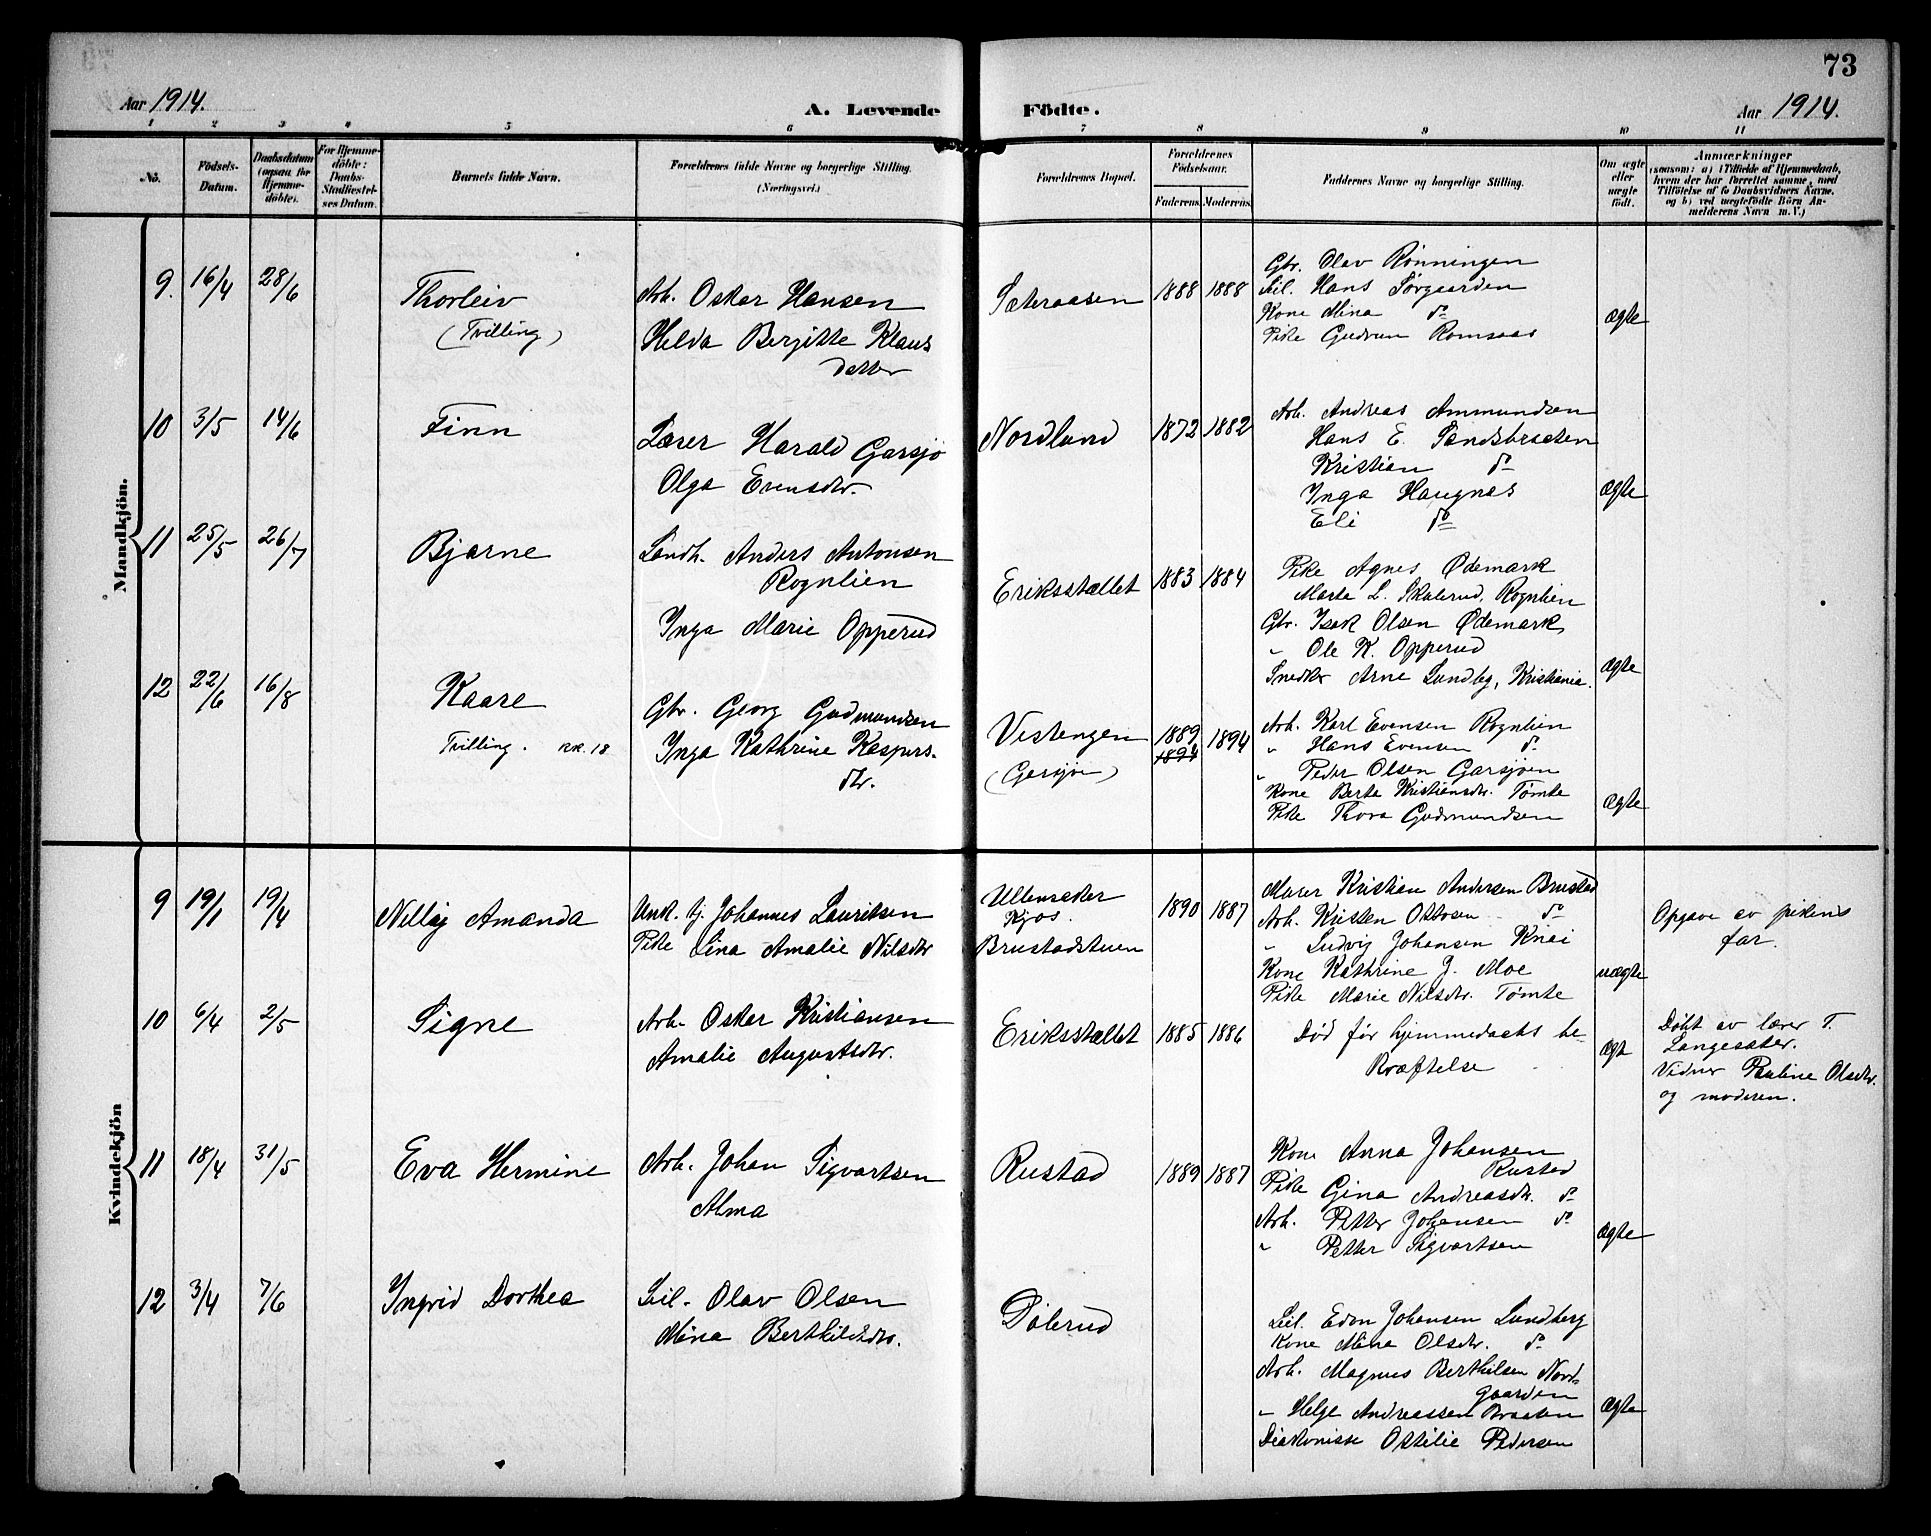 73
Aar 1914.
A. Levende Födte.
Aar 1914.
1 2 3 4 5 6 7 8 9 10 11
No. Födsels-Datum. Daabsdatum (ogsaa for Hjemme-döbte). For Hjemme-döbte: Daabs-Stadfæstel-ses Datum. Barnets fulde Navn. Forældrenes fulde Navne og borgerlige Stilling. (Næringsvei.) Forældrenes Bopæl. Forældrenes Födselsaar. Faderens. Moderens. Faddernes Navne og borgerlige Stilling. Om ægte eller uægte födt. Anmærkninger (saasom: a) i Tilfælde af Hjemmedaab, hvem der har forrettet samme, med Tilföielse af to Daabsvidners Navne, og b) ved uægtefödte Börn An-melderens Navn m. V.)
Mandkjön.
9. 16/4 28/6
Thorleiv
(Tvilling)
Arb. Oskar Hansen
Helda Bergitte Klaus
datter
Sæteraasen 1888 1888
Gbr. Olav Rønningen
Seil. Hans Sørgaarden
Kone Mina do
Pike Gudrun Romsaas
ægte
10 3/5 14/6
Finn
Lærer Harald Garsjø
Olga Evensdtr.
Nordlund 1872 1882
Arb. Andreas Ammundsen
Hans E. Sandsbraaten
Kristian do
Inga Haugnæs
Eli do
Ægte
11 25/5 26/7
Bjarne
Landh. Anders Antonsen
Rognlien
Inga Marie Opperud
Eriksstallet 1883 1884
Pike Agnes Ødemark
Marta L. Skulerud, Rognlien
Gbr. Isak Olsen Ødemark,
" Ole K. Opperud
Snedker Arne Lundby, Kristiania.
Ægte
12 22/6 16/8
Kaare
Tvilling. kk. 18
Gbr. Georg Gudmundsen
Inga Kathrine Kaspers-
dtr.
Vestengen
(Garsjøen)
1889 1894
1894
Arb. Karl Evensen Rognlien
" Hans Evensen do
" Peder Olsen Garsjøen
Kone Berta Kristiansdtr. Tømte
Pike Thora Gudmundsen
Ægte
Kvindekjön
9 19/1 19/4
Nelly Amanda
Unk. tj. Johannes Lauritsen
Pike Lina Amalie Nilsdtr
Ullensaker
Kjos.
Brustadstuen
1890 1887
Murer Kristian Andersen Brustad
Arb. Kristen Ottosen do
" Ludvig Johansen Knai
Kone Kathrine J. Moe
Pike Marie Nilsdtr. Tømte
uægte
Opgave av pikens
far.
10 6/4 2/5
Signe
Arb. Oskar Kristiansen
Amalie Augustsdtr.
Eriksstallet 1885 1886
Død før hjemmedaabs be-
kræftelse
ægt
Døbt av lærer T.
Langesæter.
Vidner Pauline Olsdtr.
og moderen.
11 18/4 31/5
Eva Hermine
Arb. Johan Sigvartsen
Alma
Rustad 1889 1887
Kone Anna Johansen
Rustad
Pike Gina Andreasdtr. do
Arb. Petter Johansen do
" Petter Sigvartsen
Ægte
12 3/4 7/6
Ingrid Dorthea
Seil. Olav Olsen
Mina Berthelsdtr.
Dølerud
Seil. Edon Johansen Lundberg
Kone Mina Olsdtr. do
Arb. Magnus Berthelsen Nord-
gaarden
" Helge Andreassen Braaten
Diakonisse Ottilie Pedersen
Ægte